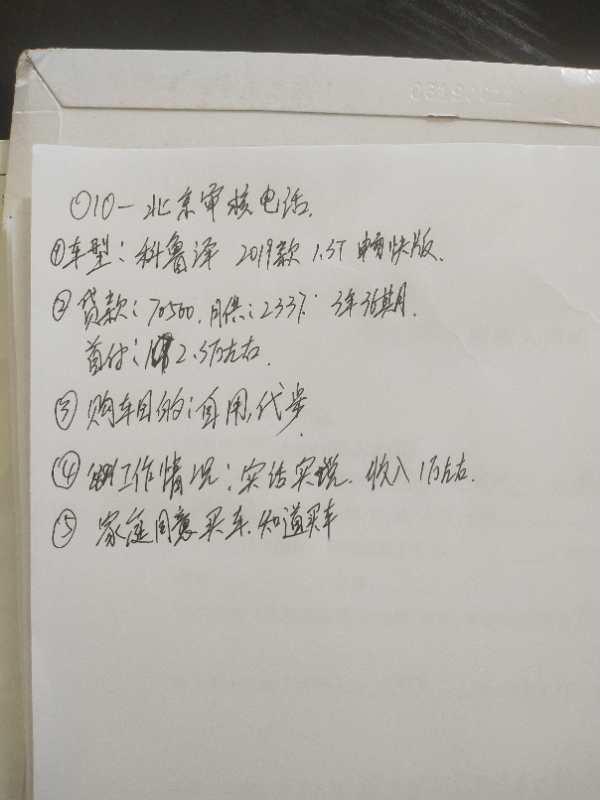 010-北京审核电话.
①车型:科鲁泽 2019款 1.3T 畅快版.
②贷款:70500.月供:2337. 3年36期.
首付:2.3万左右.
③购车目的:自用,代步
④工作情况:实话实说. 收入1万左右.
⑤家庭同意买车.知道买车